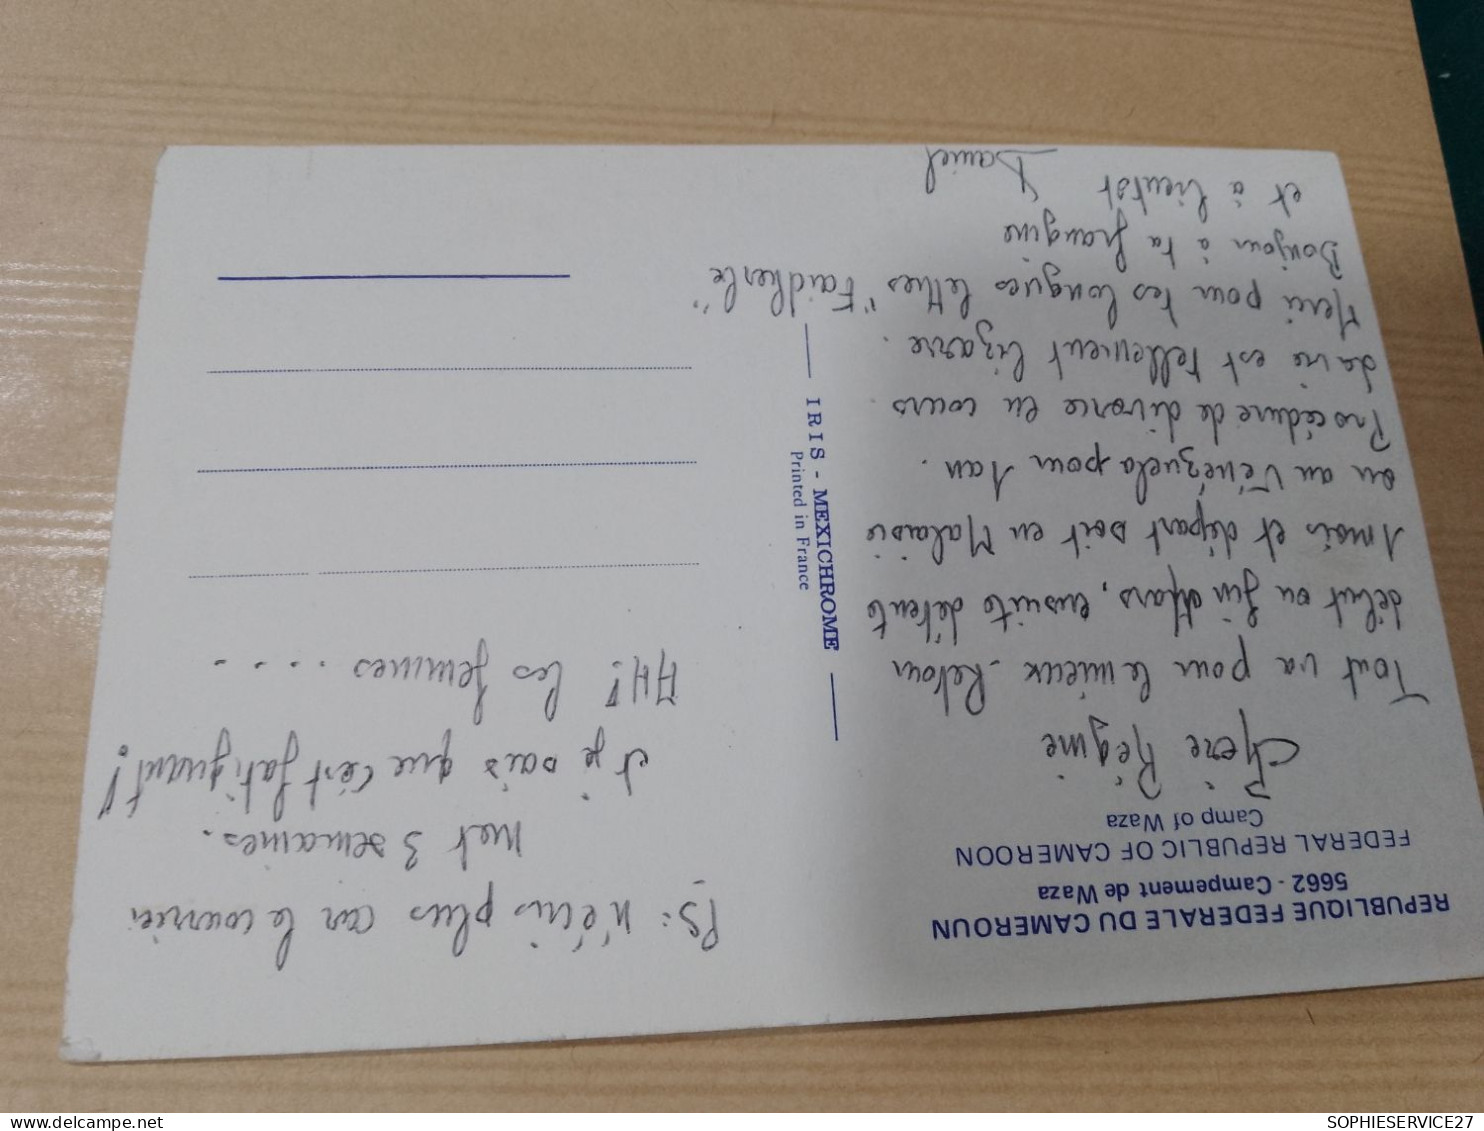 REPUBLIQUE FEDERALE DU CAMEROUN
5662 - Campement de Waza
FEDERAL REPUBLIC OF CAMEROON
Camp of Waza
Chère Régine
Tout va pour le mieux - Retour
début ou fin Mars, ensuite détente
1 mois et départ soit en Malaisie
ou au Vénézuela pour 1 an.
Procédure de divorce en cours.
La vie est tellement bizarre.
Merci pour tes longues lettres "Faidherbe"
Bonjour à ta frangine
et à bientôt
Daniel
IRIS - MEXICHROME
Printed in France
PS: N'écris plus car le courrier
met 3 semaines.
et je sais que c'est fatiguant!
AH! les femmes ....
SOPHIESERVICE27